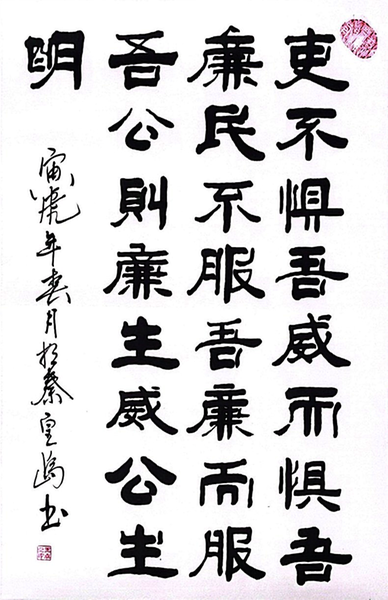 吏不惧吾威而惧吾
廉民不服吾廉而服
吾公則廉生威公生
明
寅虎年春月於秦皇島书